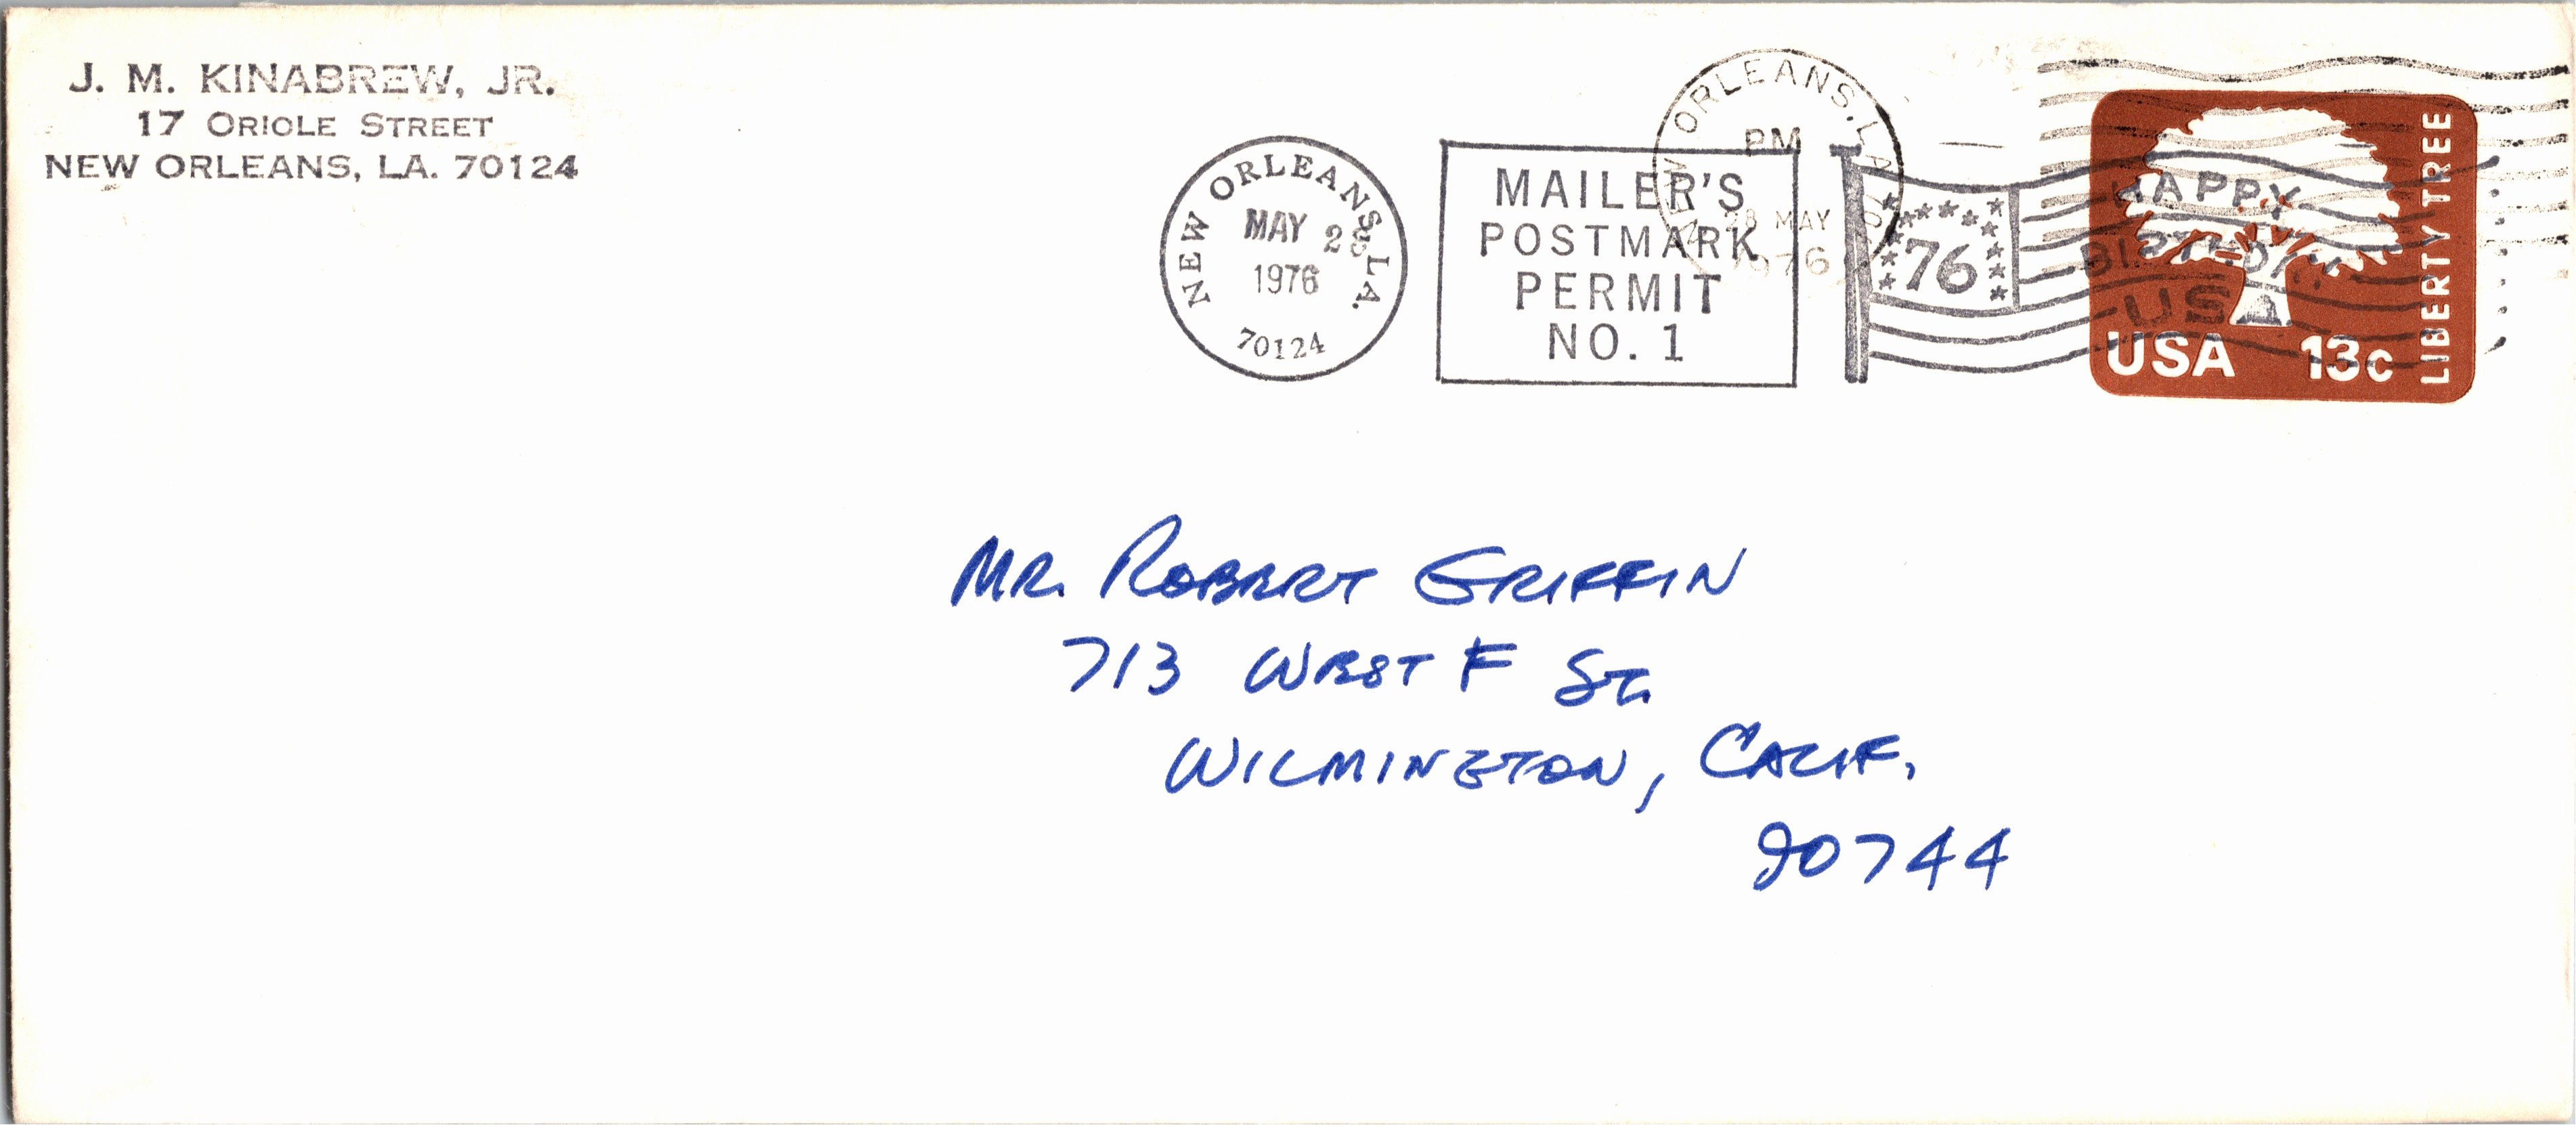 J. M. KINABREW, JR.
17 ORIOLE STREET
NEW ORLEANS, LA. 70124
NEW ORLEANS, LA.
MAY 28
1976
70124
MAILER'S
POSTMARK
PERMIT
NO. 1
NEW ORLEANS, LA
PM
28 MAY
1976
76
HAPPY
BIRTHDAY
USA
USA 13c
LIBERTY TREE
MR. ROBERT GRIFFIN
713 WEST F ST.
WILMINGTON, CALIF.
90744